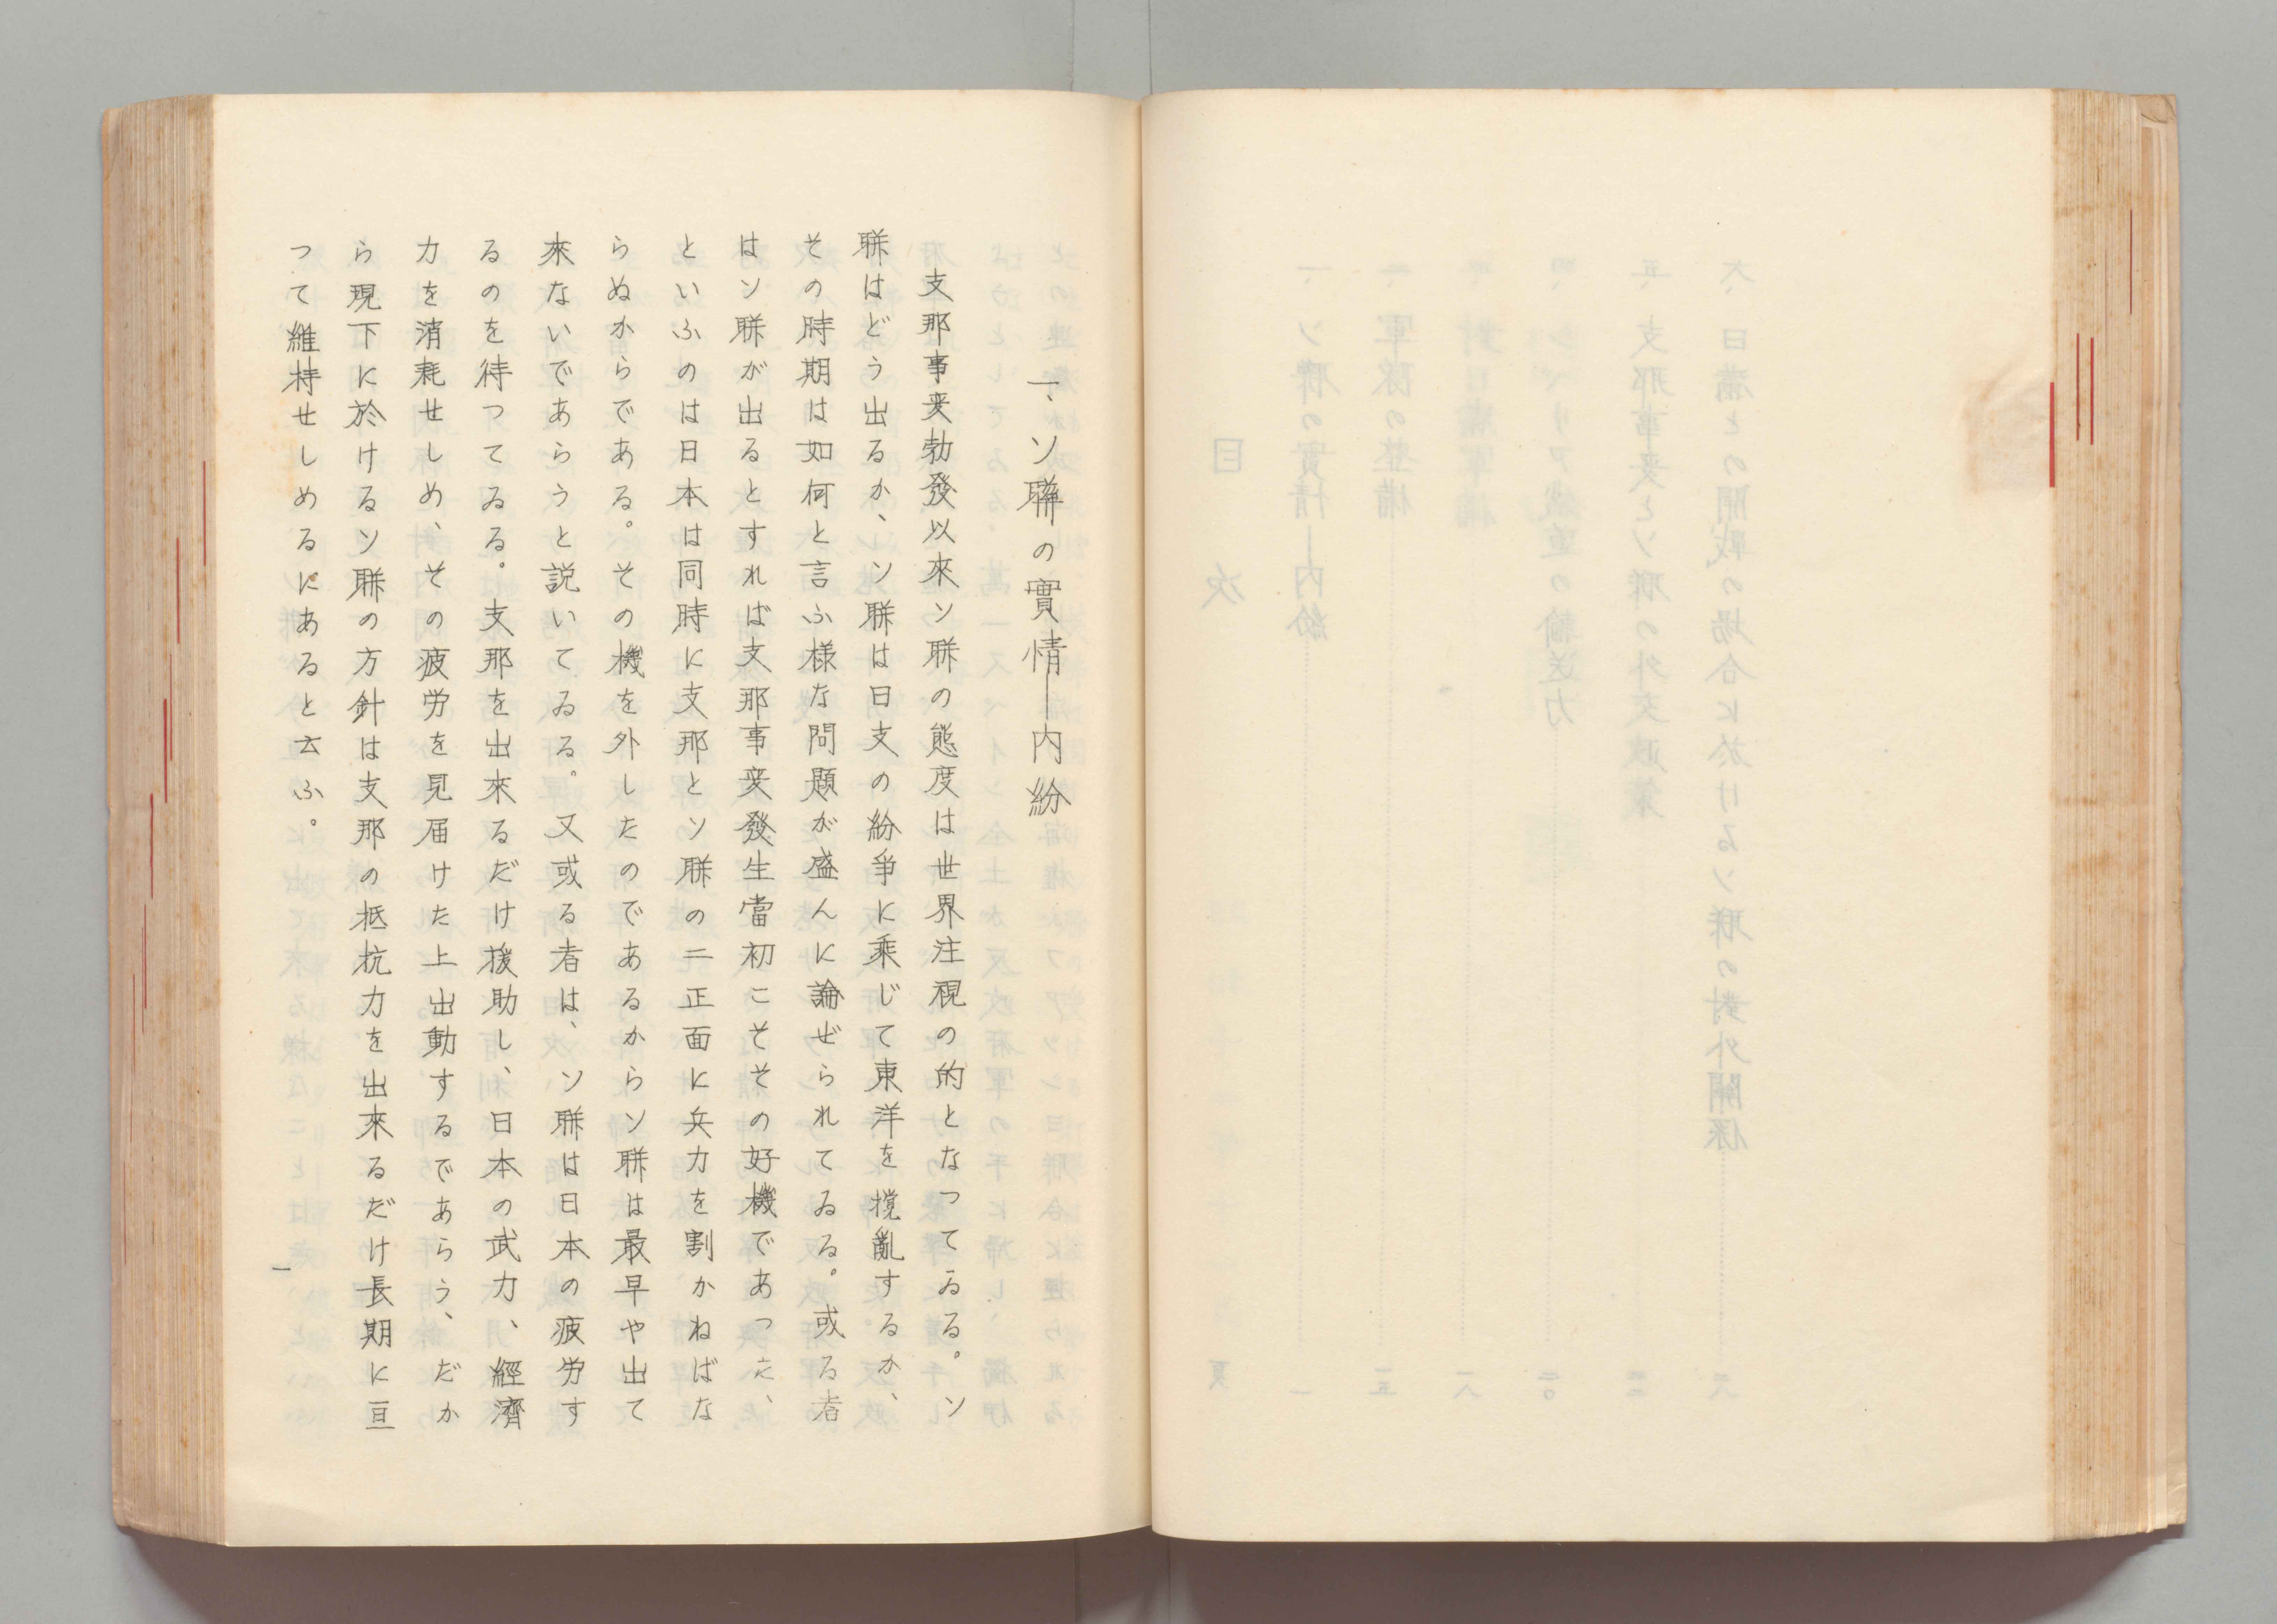 一、ソ聯の實情―内紛
支那事変勃發以來ソ聯の態度は世界注視の的となつてゐる。ソ
聯はどう出るか、ソ聯は日支の紛爭に乘じて東洋を攪亂するか、
その時期は如何と言ふ様な問題が盛んに論ぜられてゐる。或る者
はソ聯が出るとすれば支那事変發生當初こそその好機であつた、
といふのは日本は同時に支那とソ聯の二正面に兵力を割かねばな
らぬからである。その機を外したのであるからソ聯は最早や出て
來ないであらうと説いてゐる。又或る者は、ソ聯は日本の疲労す
るのを待つてゐる。支那を出來るだけ援助し、日本の武力、經濟
力を消耗せしめ、その疲労を見届けた上出動するであらう、だか
ら現下に於けるソ聯の方針は支那の抵抗力を出來るだけ長期に亘
つて維持せしめるにあると云ふ。
一